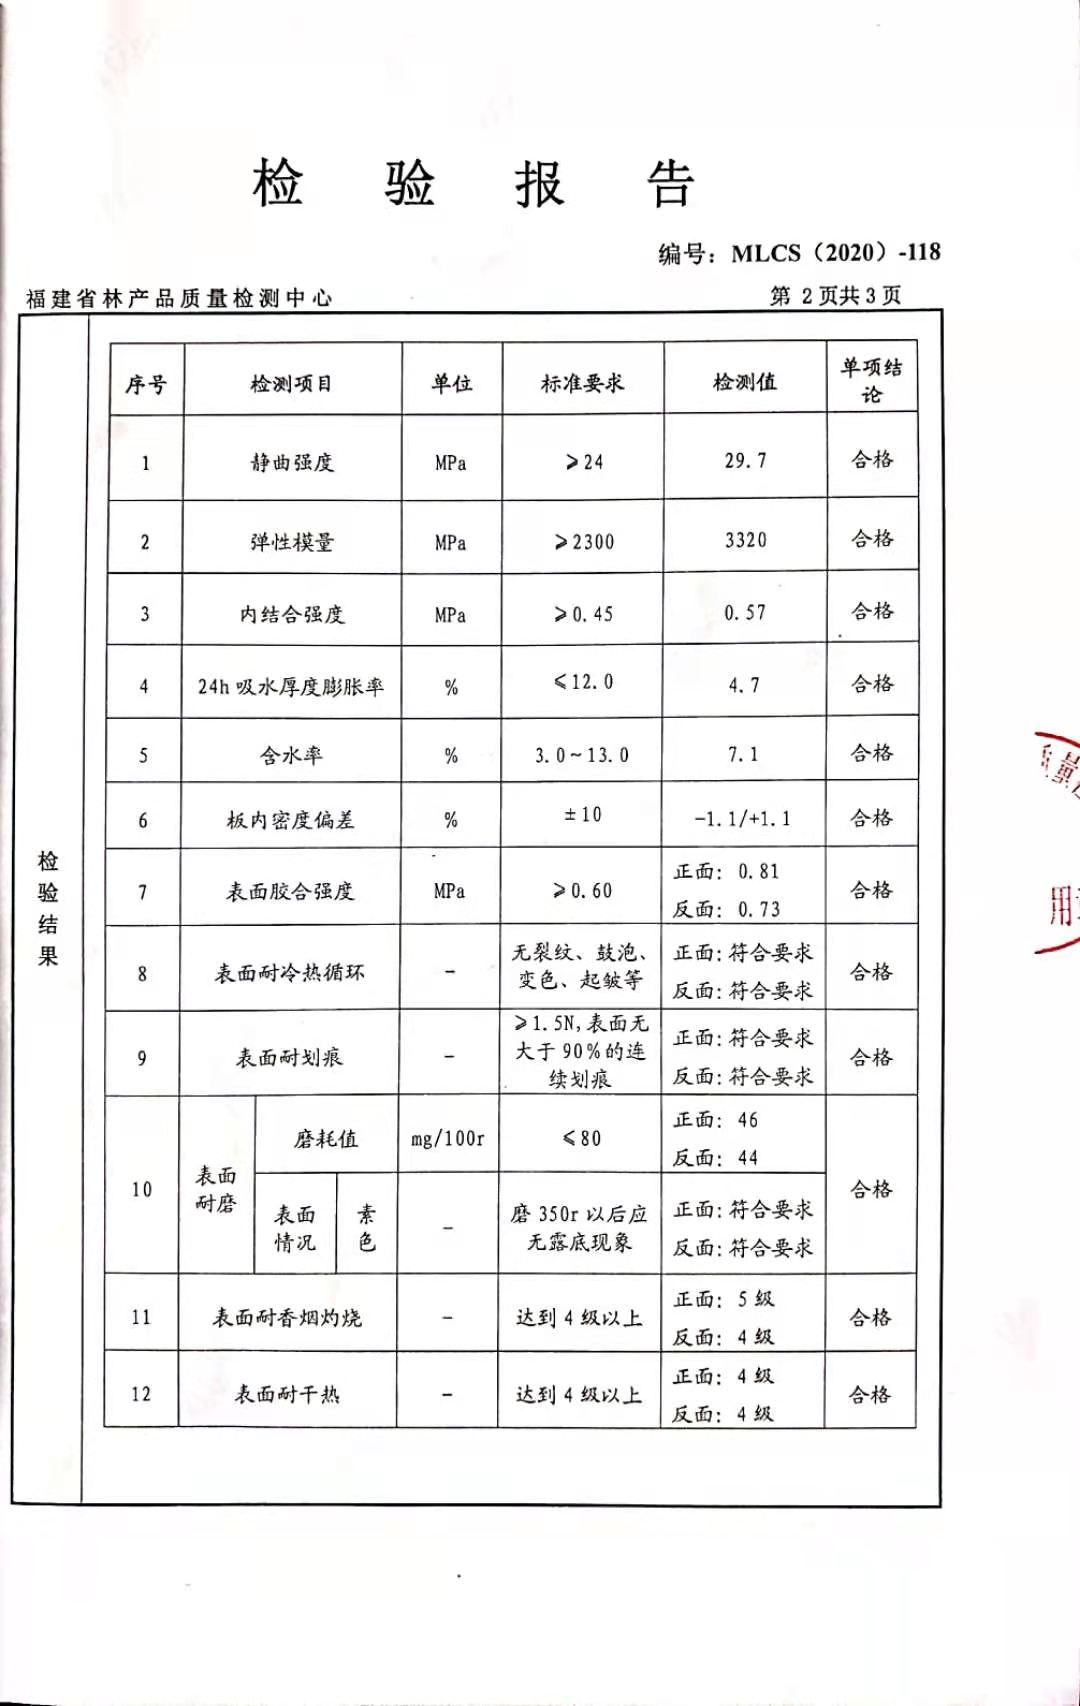 检验报告
编号：MLCS（2020）-118
福建省林产品质量检测中心
第 2 页共 3 页
检验结果
序号 检测项目 单位 标准要求 检测值 单项结论
1 静曲强度 MPa ≥24 29.7 合格
2 弹性模量 MPa ≥2300 3320 合格
3 内结合强度 MPa ≥0.45 0.57 合格
4 24h 吸水厚度膨胀率 % ≤12.0 4.7 合格
5 含水率 % 3.0~13.0 7.1 合格
6 板内密度偏差 % ±10 -1.1/+1.1 合格
7 表面胶合强度 MPa ≥0.60 正面: 0.81 反面: 0.73 合格
8 表面耐冷热循环 - 无裂纹、鼓泡、变色、起皱等 正面:符合要求 反面:符合要求 合格
9 表面耐划痕 - ≥1.5N,表面无大于90%的连续划痕 正面:符合要求 反面:符合要求 合格
10 表面耐磨 磨耗值 mg/100r ≤80 正面: 46 反面: 44 合格
表面情况 素色 - 磨 350r 以后应无露底现象 正面:符合要求 反面:符合要求
11 表面耐香烟灼烧 - 达到 4 级以上 正面: 5 级 反面: 4 级 合格
12 表面耐干热 - 达到 4 级以上 正面: 4 级 反面: 4 级 合格
质量
用